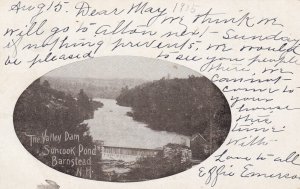 Aug 15. Dear May 1915
We think we
will go to Alton next Sunday
if nothing prevents. We would
be pleased to see your people
there. We
cannot
come to
your
house
this
time
With
Love to all
Effie Emerson
"The Valley Dam"
Suncook Pond
Barnstead
N.H.